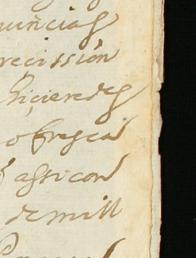 nuncias
recission
hicieredes
ofresca
assi con
de mill